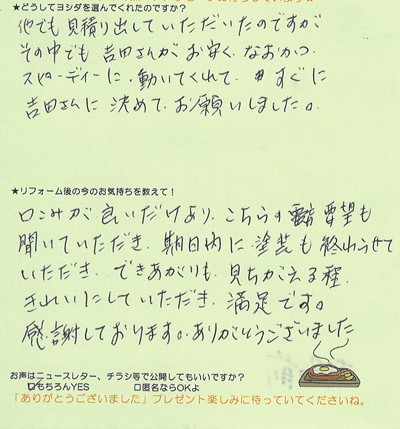 ★どうしてヨシダを選んでくれたのですか?
他でも見積り出していただいたのですが
その中でも吉田さんがお安く、なおかつ
スピーディーに、動いてくれて、すぐに
吉田さんに決めて、お願いしました。
★リフォーム後の今のお気持ちを教えて!
口こみが良いだけあり、こちらの要望も
聞いていただき、期日内に塗装も終わらせて
いただき、できあがりも、見ちがえる程、
きれいにしていただき、満足です。
感謝しております。ありがとうございました
お声はニュースレター、チラシ等で公開してもいいですか?
□もちろんYES □匿名ならOKよ
「ありがとうございました」プレゼント楽しみに待っていてくださいね。